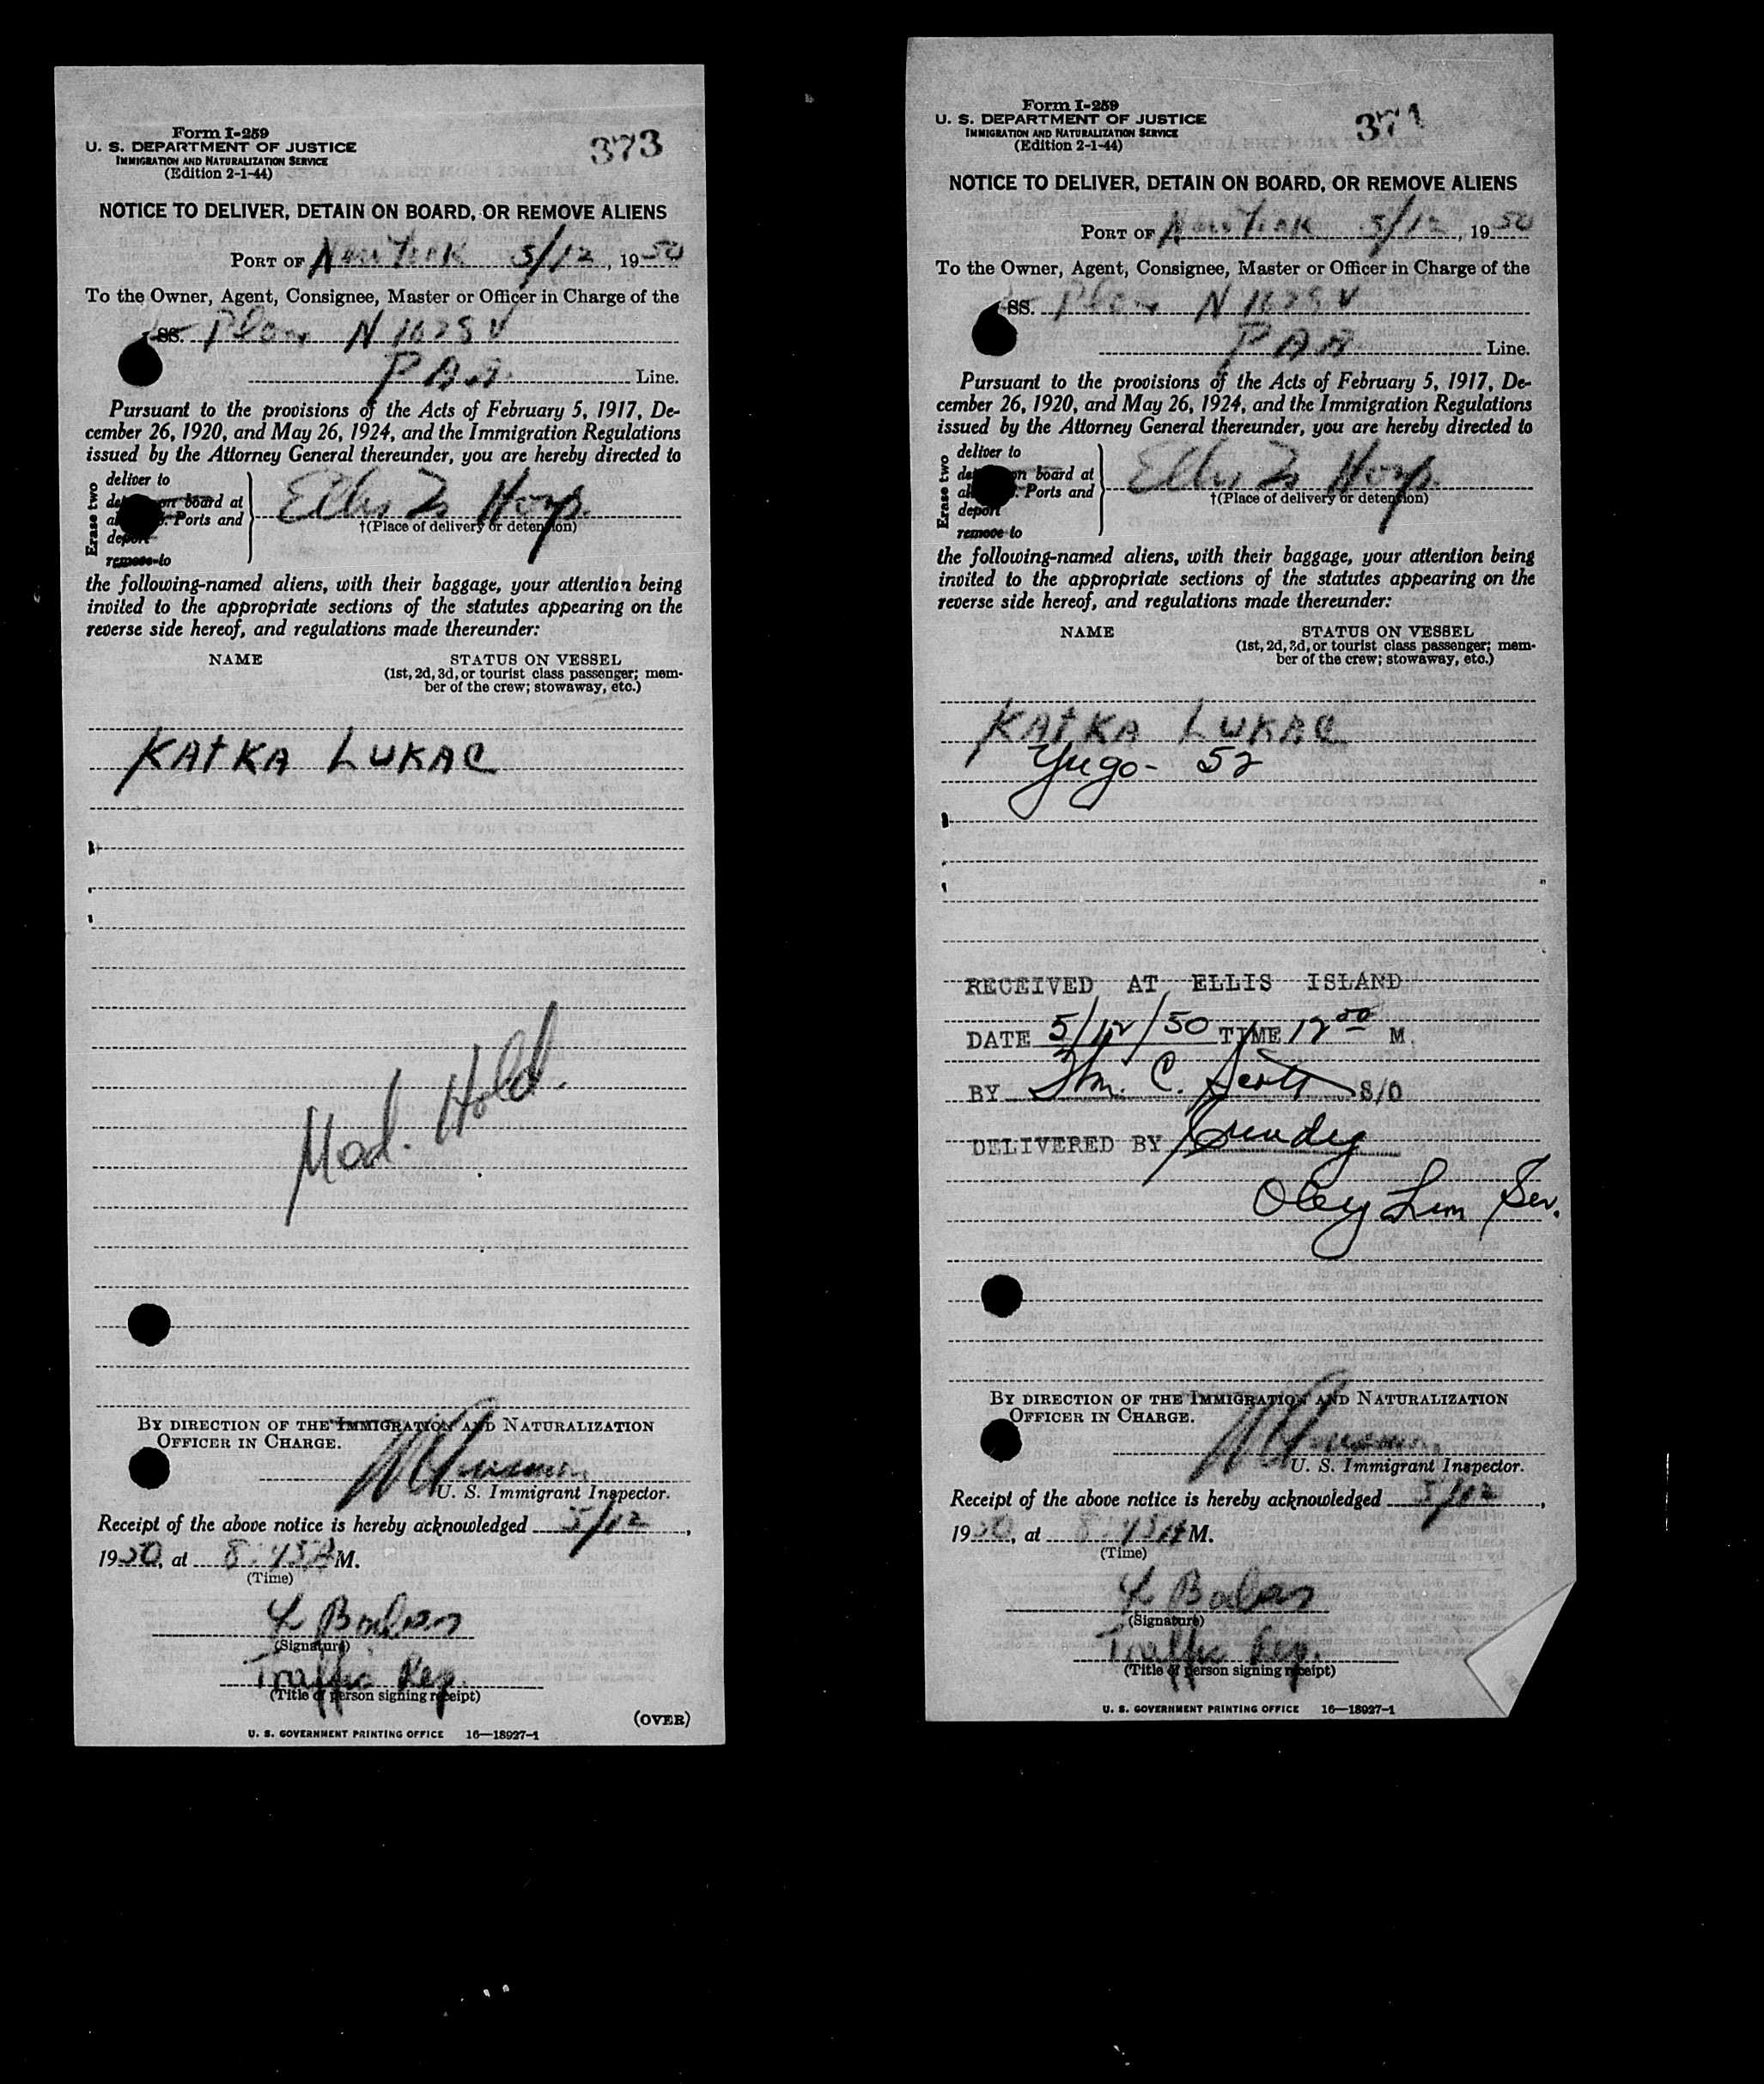 Form I-259
U. S. DEPARTMENT OF JUSTICE
IMMIGRATION AND NATURALIZATION SERVICE
(Edition 2-1-44)
373
NOTICE TO DELIVER, DETAIN ON BOARD, OR REMOVE ALIENS
PORT OF New York 5/12, 1950
To the Owner, Agent, Consignee, Master or Officer in Charge of the
SS. Plane N 1028 V
P A A Line.
Pursuant to the provisions of the Acts of February 5, 1917, De-
cember 26, 1920, and May 26, 1924, and the Immigration Regulations
issued by the Attorney General thereunder, you are hereby directed to
Erase two
deliver to
on board at
Ports and
deport
remove to
Ellis Is Hosp.
†(Place of delivery or detention)
the following-named aliens, with their baggage, your attention being
invited to the appropriate sections of the statutes appearing on the
reverse side hereof, and regulations made thereunder:
NAME
STATUS ON VESSEL
(1st, 2d, 3d, or tourist class passenger; mem-
ber of the crew; stowaway, etc.)
KATKA LUKAC
Med. Hold.
BY DIRECTION OF THE IMMIGRATION AND NATURALIZATION
OFFICER IN CHARGE.
U. S. Immigrant Inspector.
Receipt of the above notice is hereby acknowledged 5/12,
1950, at 8:45 A M.
(Time)
(Signature)
Traffic Rep.
(Title of person signing receipt)
(OVER)
U. S. GOVERNMENT PRINTING OFFICE 16—18927-1
Form I-259
U. S. DEPARTMENT OF JUSTICE
IMMIGRATION AND NATURALIZATION SERVICE
(Edition 2-1-44)
371
NOTICE TO DELIVER, DETAIN ON BOARD, OR REMOVE ALIENS
PORT OF New York 5/12, 1950
To the Owner, Agent, Consignee, Master or Officer in Charge of the
SS. Plane N 1028 V
P A A Line.
Pursuant to the provisions of the Acts of February 5, 1917, De-
cember 26, 1920, and May 26, 1924, and the Immigration Regulations
issued by the Attorney General thereunder, you are hereby directed to
Erase two
deliver to
on board at
Ports and
deport
remove to
Ellis Is Hosp.
†(Place of delivery or detention)
the following-named aliens, with their baggage, your attention being
invited to the appropriate sections of the statutes appearing on the
reverse side hereof, and regulations made thereunder:
NAME
STATUS ON VESSEL
(1st, 2d, 3d, or tourist class passenger; mem-
ber of the crew; stowaway, etc.)
KATKA LUKAC
Yugo- 52
RECEIVED AT ELLIS ISLAND
DATE 5/12/50 TIME 12 00 M.
BY Wm. C. Scott S/O
DELIVERED BY Grundig
Oley Lim Ser.
BY DIRECTION OF THE IMMIGRATION AND NATURALIZATION
OFFICER IN CHARGE.
U. S. Immigrant Inspector.
Receipt of the above notice is hereby acknowledged 5/12,
1950, at 8:45 A M.
(Time)
(Signature)
Traffic Rep.
(Title of person signing receipt)
U. S. GOVERNMENT PRINTING OFFICE 16—18927-1